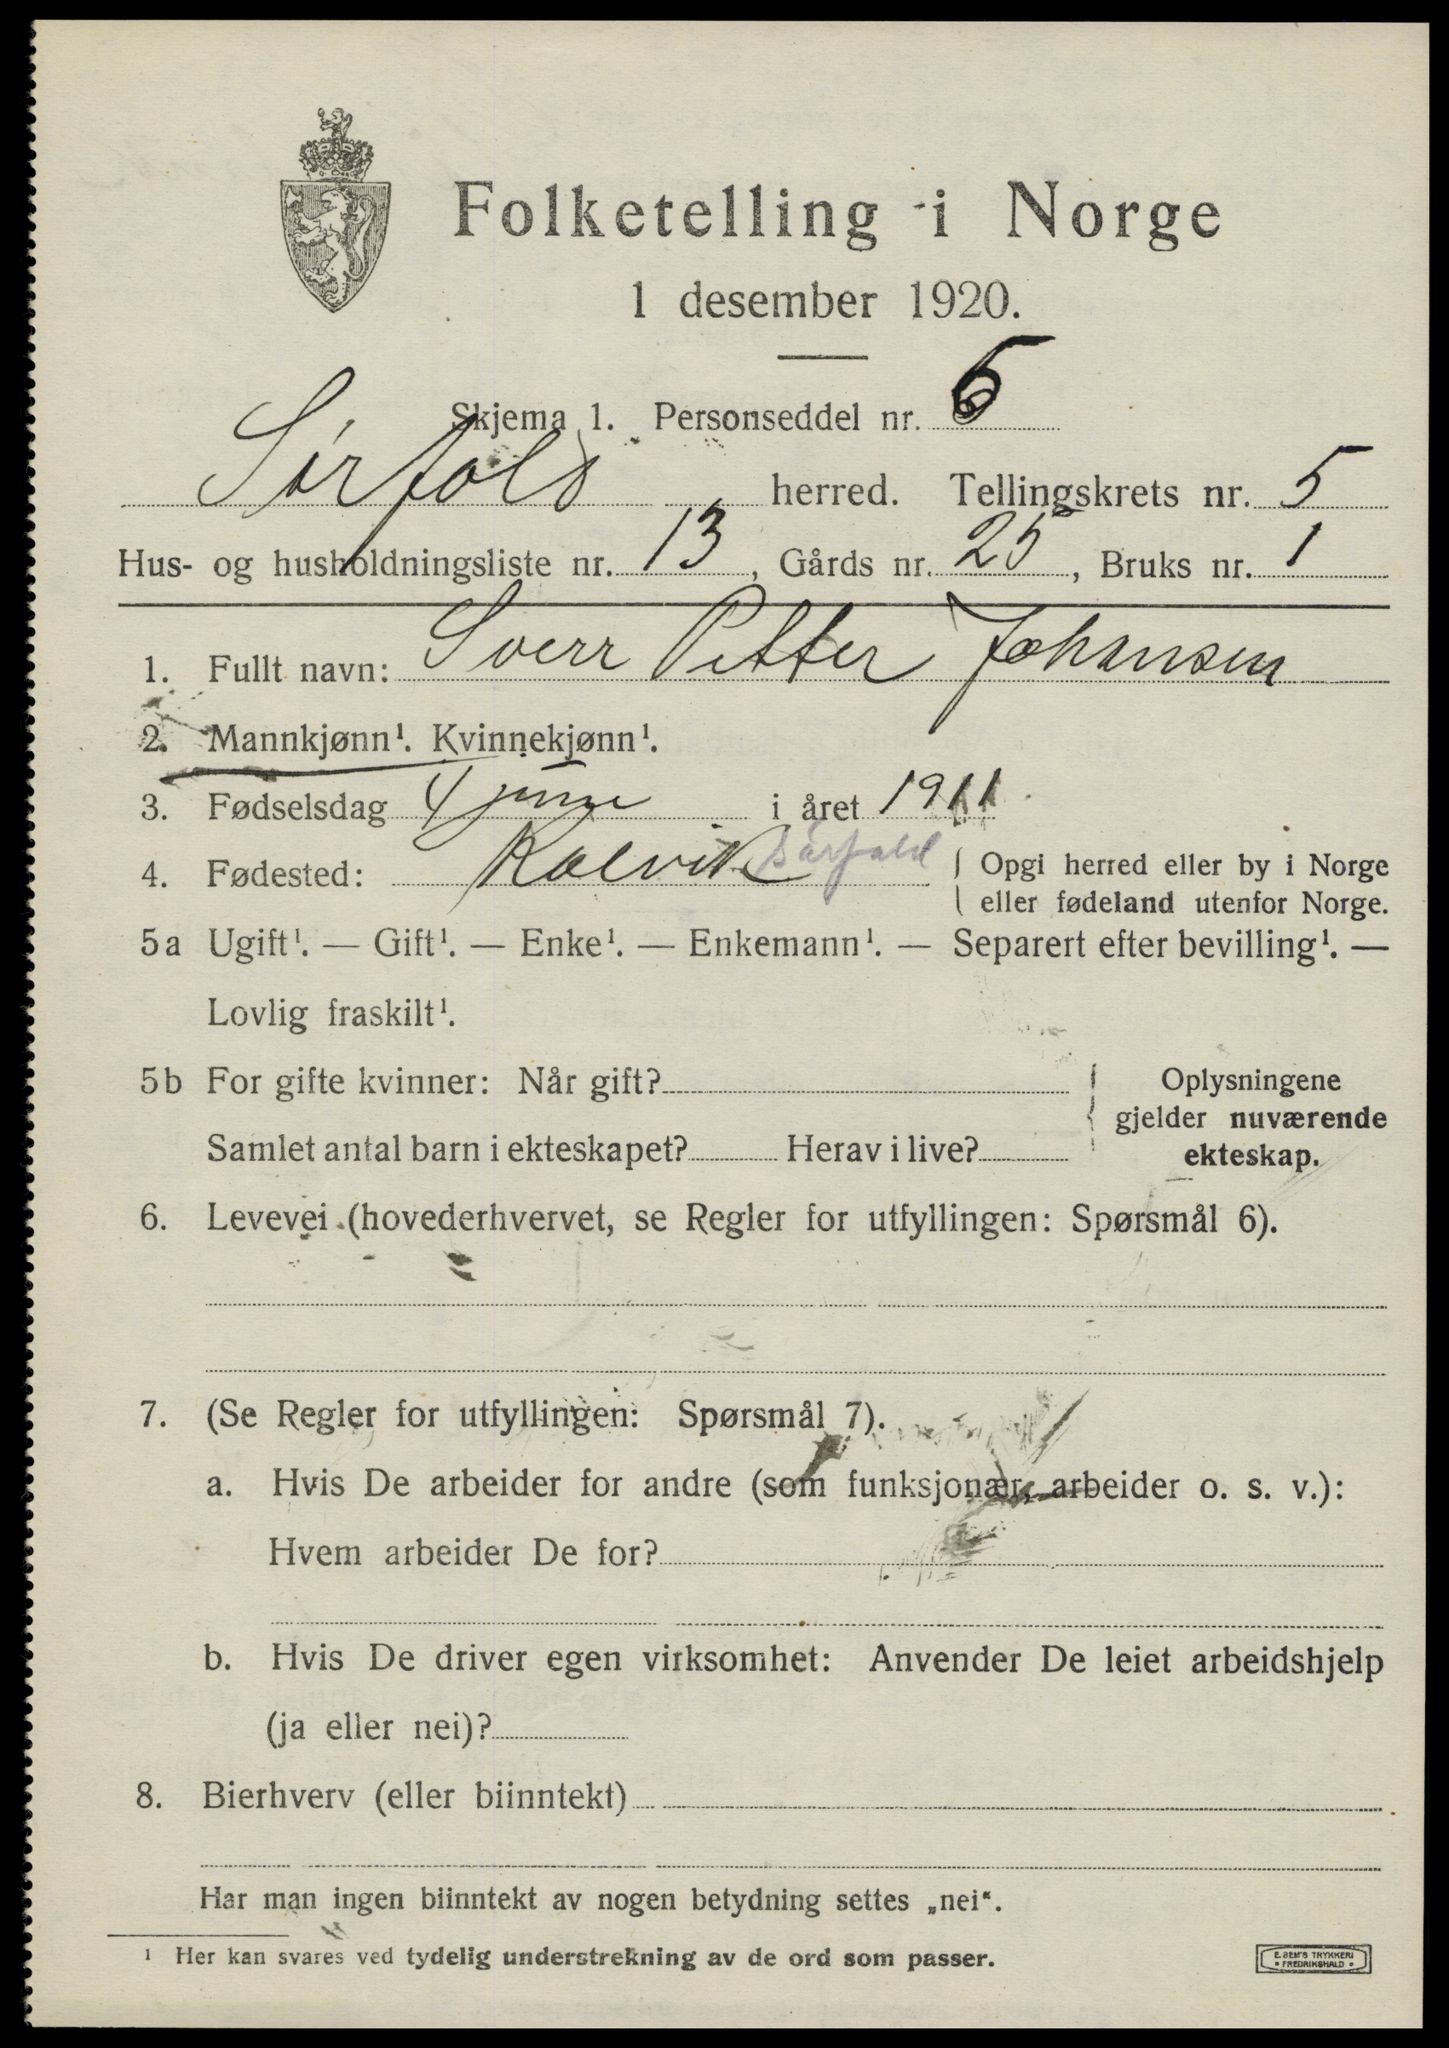 Folketelling i Norge
1 desember 1920.
Skjema 1. Personseddel nr. 6
Sørfold herred. Tellingskrets nr. 5
Hus- og husholdningsliste nr. 13, Gårds nr. 25, Bruks nr. 1
1. Fullt navn: Sverr Petter Johansen
2. Mannkjønn¹. Kvinnekjønn¹.
3. Fødselsdag 4 june i året 1911
4. Fødested: Kolvik Sørfold { Opgi herred eller by i Norge
eller fødeland utenfor Norge.
5a Ugift¹. — Gift¹. — Enke¹. — Enkemann¹. — Separert efter bevilling¹. —
Lovlig fraskilt¹.
5b For gifte kvinner: Når gift?
Samlet antal barn i ekteskapet? Herav i live?
Oplysningene
gjelder nuværende
ekteskap.
6. Levevei (hovederhvervet, se Regler for utfyllingen: Spørsmål 6).
7. (Se Regler for utfyllingen: Spørsmål 7).
a. Hvis De arbeider for andre (som funksjonær, arbeider o. s. v.):
Hvem arbeider De for?
b. Hvis De driver egen virksomhet: Anvender De leiet arbeidshjelp
(ja eller nei)?
8. Bierhverv (eller biinntekt)
Har man ingen biinntekt av nogen betydning settes „nei“.
¹ Her kan svares ved tydelig understrekning av de ord som passer.
E. SEM'S TRYKKERI
• FREDRIKSHALD •